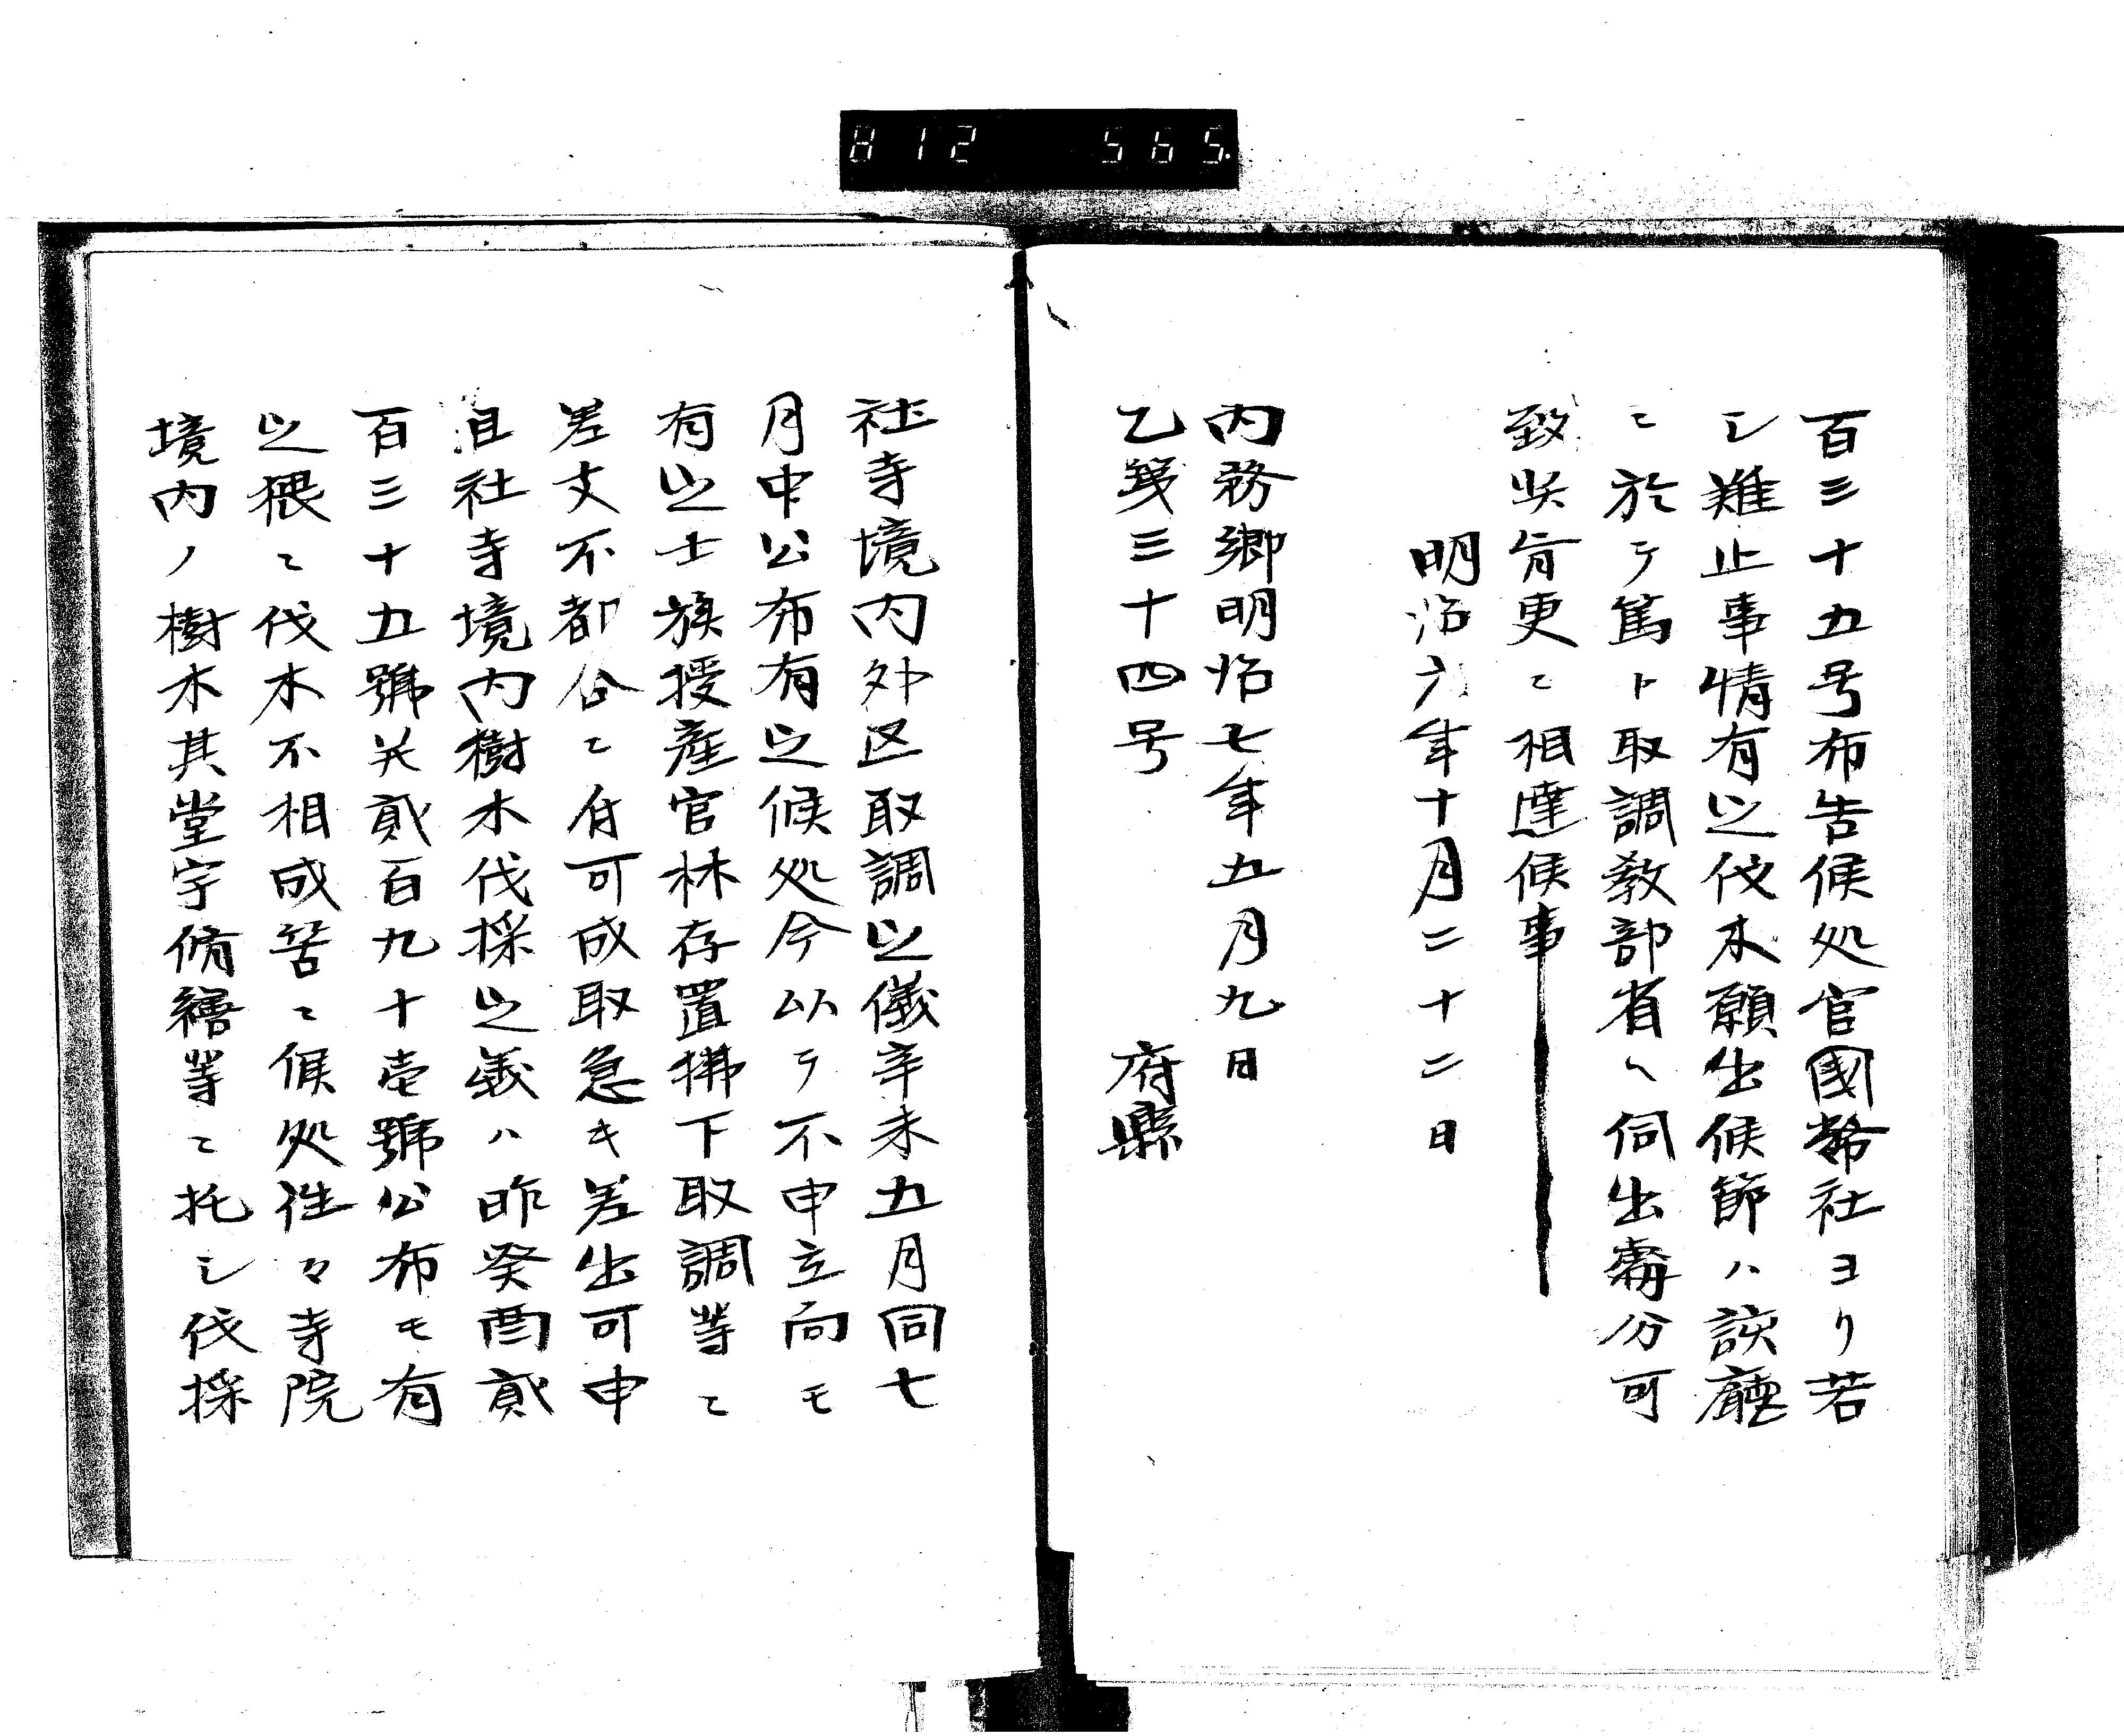 812 565
百三十五号布告候処官國幣社ヨリ若
シ難止事情有之伐木願出候節ハ該廳
ニ於テ篤ト取調教部省ヘ伺出處分可
致此旨更ニ相達候事
明治六年十月二十二日
内務卿明治七年五月九日
乙第三十四号 府縣
社寺境内外区取調之儀辛未五月同七
月中公布有之候処今以テ不申立向モ
有之士族授産官林存置拂下取調等ニ
差支不都合ニ付可成取急キ差出可申
且社寺境内樹木伐採之義ハ昨癸酉貮
百三十五號并貮百九十壱號公布モ有
之猥ニ伐木不相成筈ニ候処往々寺院
境内ノ樹木其堂宇脩繕等ニ托シ伐採